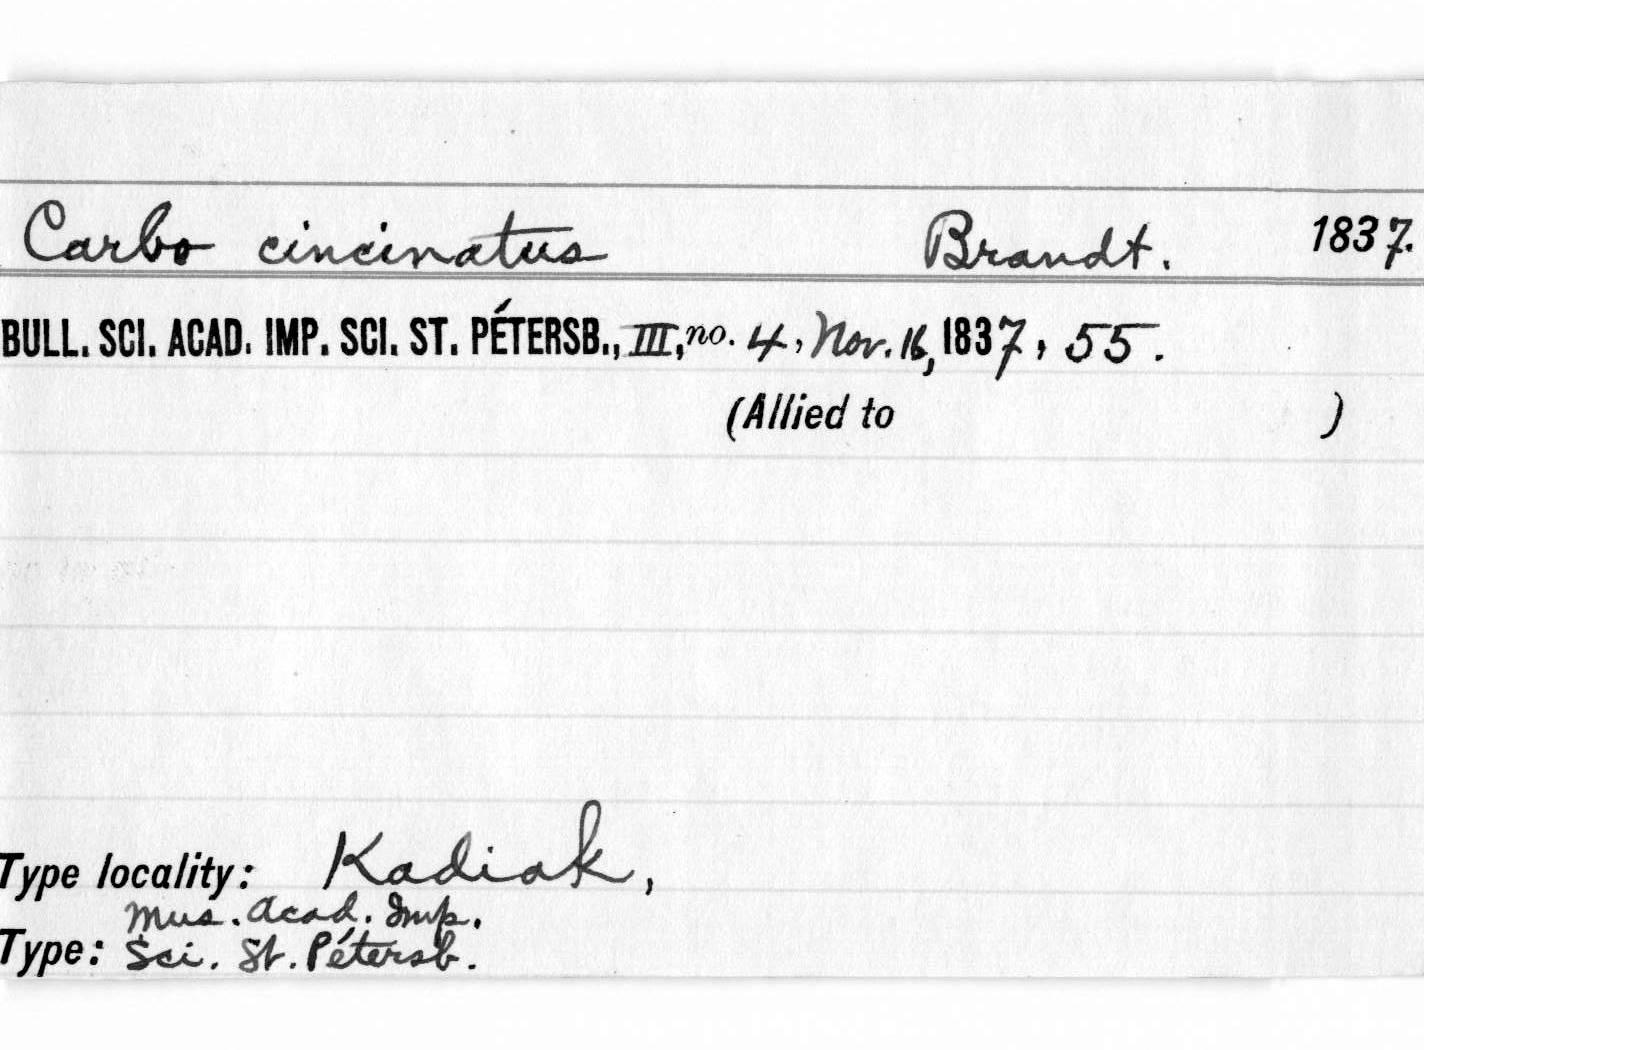 Carbo cincinatus Brandt. 1837.
BULL. SCI. ACAD. IMP. SCI. ST. PÉTERSB., III, no. 4, Nov. 16, 1837, 55.
(Allied to )
Type locality: Kadiak,
Mus. Acad. Imp.
Type: Sci. St. Pétersb.